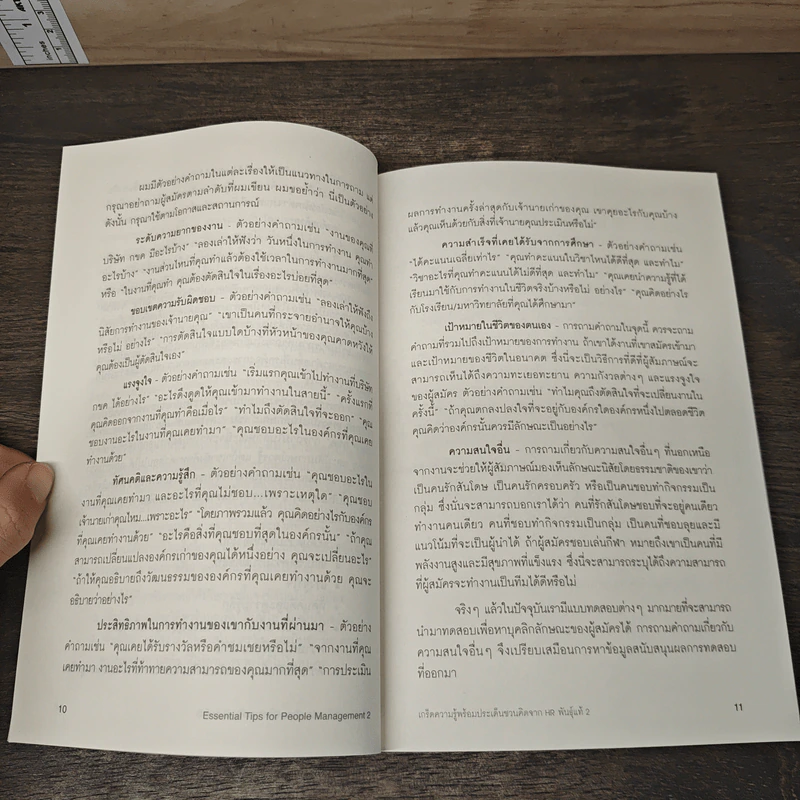 ผมมีตัวอย่างคำถามในแต่ละเรื่องให้เป็นแนวทางในการถาม แต่
กรุณาอย่าถามผู้สมัครตามลำดับที่ผมเขียน ผมขอย้ำว่า นี่เป็นตัวอย่าง
ดังนั้น กรุณาใช้ตามโอกาสและสถานการณ์
ระดับความยากของงาน - ตัวอย่างคำถามเช่น “งานของคุณที่
บริษัท กขค มีอะไรบ้าง” “ลองเล่าให้ฟังว่า วันหนึ่งในการทำงาน คุณทำ
อะไรบ้าง” “งานส่วนไหนที่คุณทำแล้วต้องใช้เวลาในการทำงานมากที่สุด”
หรือ “ในงานที่คุณทำ คุณต้องตัดสินใจในเรื่องอะไรบ่อยที่สุด”
ขอบเขตความรับผิดชอบ - ตัวอย่างคำถามเช่น “ลองเล่าให้ฟังถึง
นิสัยการทำงานของเจ้านายคุณ” “เขาเป็นคนที่กระจายอำนาจให้คุณบ้าง
หรือไม่ อย่างไร” “การตัดสินใจแบบใดบ้างที่หัวหน้าของคุณคาดหวังให้
คุณต้องเป็นผู้ตัดสินใจเอง”
แรงจูงใจ - ตัวอย่างคำถามเช่น “เริ่มแรกคุณเข้าไปทำงานที่บริษัท
กขค ได้อย่างไร” “อะไรดึงดูดให้คุณเข้ามาทำงานในสายนี้” “ครั้งแรกที่
คุณคิดออกจากงานที่คุณทำคือเมื่อไร” “ทำไมถึงตัดสินใจที่จะออก” “คุณ
ชอบงานอะไรในงานที่คุณเคยทำมา” “คุณชอบอะไรในองค์กรที่คุณเคย
ทำงานด้วย”
ทัศนคติและความรู้สึก - ตัวอย่างคำถามเช่น “คุณชอบอะไรใน
งานที่คุณเคยทำมา และอะไรที่คุณไม่ชอบ...เพราะเหตุใด” “คุณชอบ
เจ้านายเก่าคุณไหม...เพราะอะไร” “โดยภาพรวมแล้ว คุณคิดอย่างไรกับองค์กร
ที่คุณเคยทำงานด้วย” “อะไรคือสิ่งที่คุณชอบที่สุดในองค์กรนั้น” “ถ้าคุณ
สามารถเปลี่ยนแปลงองค์กรเก่าของคุณได้หนึ่งอย่าง คุณจะเปลี่ยนอะไร”
“ถ้าให้คุณอธิบายถึงวัฒนธรรมขององค์กรที่คุณเคยทำงานด้วย คุณจะ
อธิบายว่าอย่างไร”
ประสิทธิภาพในการทำงานของเขากับงานที่ผ่านมา - ตัวอย่าง
คำถามเช่น “คุณเคยได้รับรางวัลหรือคำชมเชยหรือไม่” “จากงานที่คุณ
เคยทำมา งานอะไรที่ท้าทายความสามารถของคุณมากที่สุด” “การประเมิน
10
Essential Tips for People Management 2
ผลการทำงานครั้งล่าสุดกับเจ้านายเก่าของคุณ เขาคุยอะไรกับคุณบ้าง
แล้วคุณเห็นด้วยกับสิ่งที่เจ้านายคุณประเมินหรือไม่”
ความสำเร็จที่เคยได้รับจากการศึกษา - ตัวอย่างคำถามเช่น
“ได้คะแนนเฉลี่ยเท่าไร” “คุณทำคะแนนในวิชาไหนได้ดีที่สุด และทำไม”
“วิชาอะไรที่คุณทำคะแนนได้ไม่ดีที่สุด และทำไม” “คุณเคยนำความรู้ที่ได้
เรียนมาใช้กับการทำงานในชีวิตจริงบ้างหรือไม่ อย่างไร” “คุณคิดอย่างไร
กับโรงเรียน/มหาวิทยาลัยที่คุณได้ศึกษามา”
เป้าหมายในชีวิตของตนเอง - การถามคำถามในจุดนี้ ควรจะถาม
คำถามที่รวมไปถึงเป้าหมายของการทำงาน ถ้าเขาได้งานที่เขาสมัครเข้ามา
และเป้าหมายของชีวิตในอนาคต ซึ่งนี่จะเป็นวิธีการที่ดีที่ผู้สัมภาษณ์จะ
สามารถเห็นได้ถึงความทะเยอทะยาน ความกังวลต่างๆ และแรงจูงใจ
ของผู้สมัคร ตัวอย่างคำถามเช่น “ทำไมคุณถึงตัดสินใจที่จะเปลี่ยนงานใน
ครั้งนี้” “ถ้าคุณตกลงปลงใจที่จะอยู่กับองค์กรใดองค์กรหนึ่งไปตลอดชีวิต
คุณคิดว่าองค์กรนั้นควรมีลักษณะเป็นอย่างไร”
ความสนใจอื่น - การถามเกี่ยวกับความสนใจอื่นๆ ที่นอกเหนือ
จากงานจะช่วยให้ผู้สัมภาษณ์มองเห็นลักษณะนิสัยโดยธรรมชาติของเขาว่า
เป็นคนรักสันโดษ เป็นคนรักครอบครัว หรือเป็นคนชอบทำกิจกรรมเป็น
กลุ่ม ซึ่งนั่นจะสามารถบอกเราได้ว่า คนที่รักสันโดษชอบที่จะอยู่คนเดียว
ทำงานคนเดียว คนที่ชอบทำกิจกรรมเป็นกลุ่ม เป็นคนที่ชอบลุยและมี
แนวโน้มที่จะเป็นผู้นำได้ ถ้าผู้สมัครชอบเล่นกีฬา หมายถึงเขาเป็นคนที่มี
พลังงานสูงและมีสุขภาพที่แข็งแรง ซึ่งนี่จะสามารถระบุได้ถึงความสามารถ
ที่ผู้สมัครจะทำงานเป็นทีมได้ดีหรือไม่
จริงๆ แล้วในปัจจุบันเรามีแบบทดสอบต่างๆ มากมายที่จะสามารถ
นำมาทดสอบเพื่อหาบุคลิกลักษณะของผู้สมัครได้ การถามคำถามเกี่ยวกับ
ความสนใจอื่นๆ จึงเปรียบเสมือนการหาข้อมูลสนับสนุนผลการทดสอบ
ที่ออกมา
เกร็ดความรู้พร้อมประเด็นชวนคิดจาก HR พันธุ์แท้ 2
11